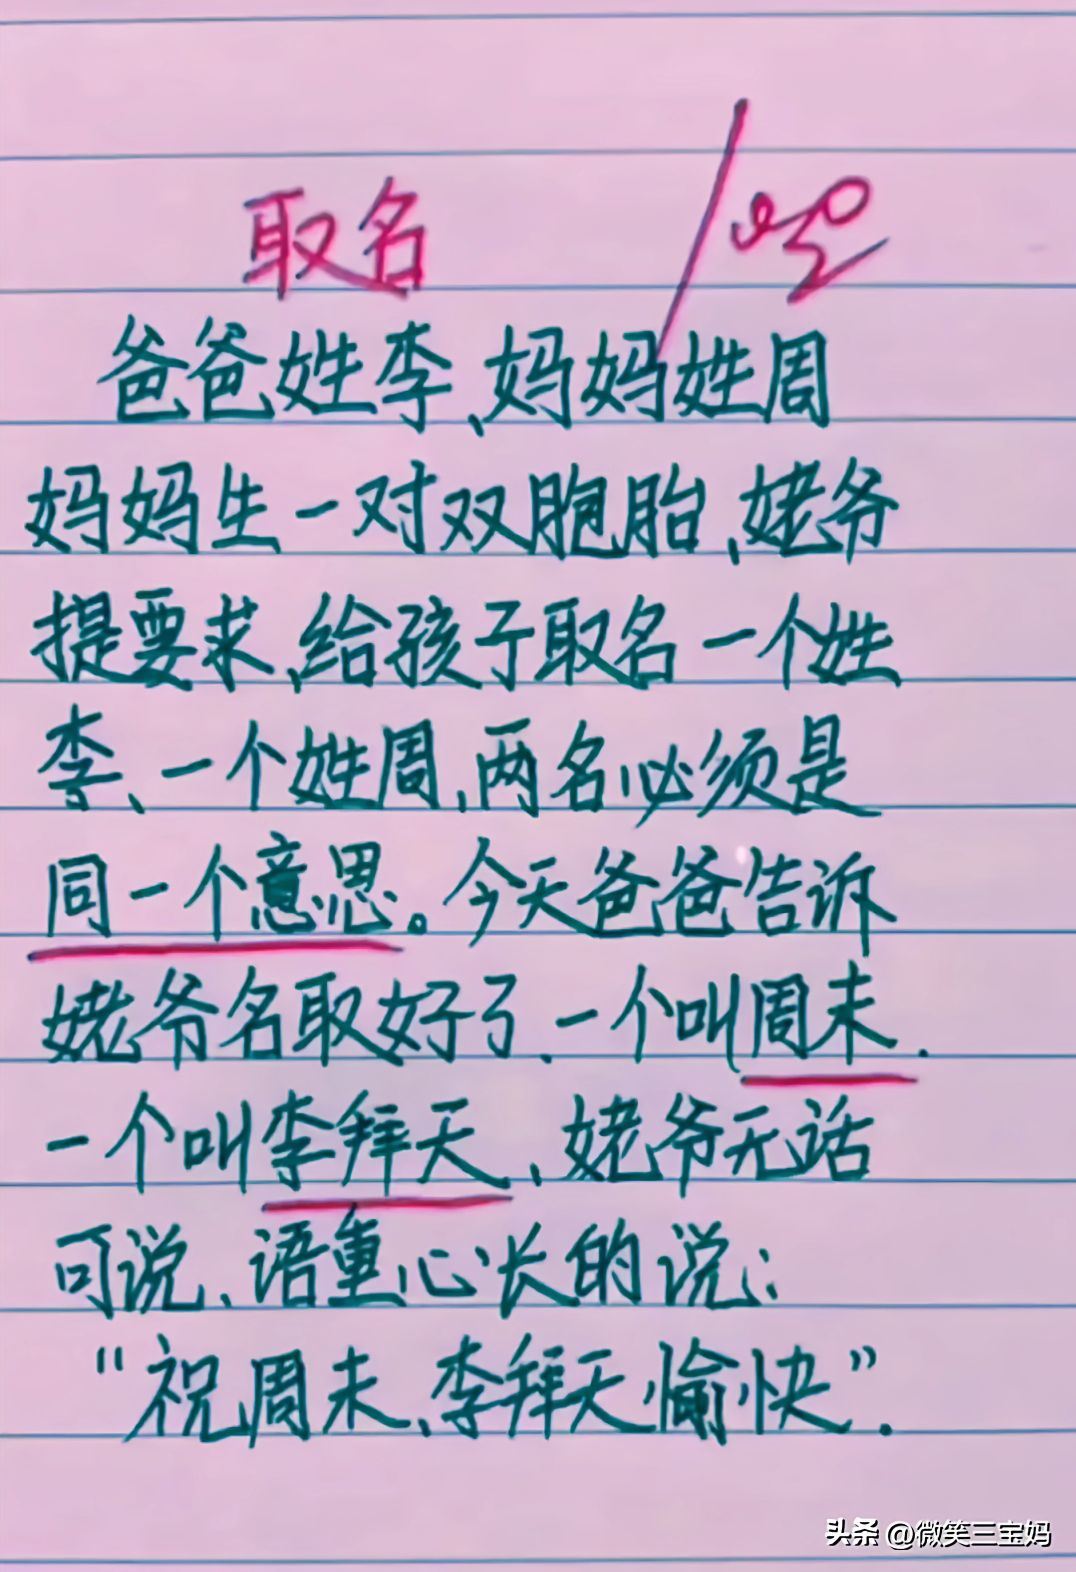 取名
爸爸姓李、妈妈姓周
妈妈生一对双胞胎、姥爷
提要求、给孩子取名一个姓
李、一个姓周,两名必须是
同一个意思。今天爸爸告诉
姥爷名取好了、一个叫周末.
一个叫李拜天、姥爷无话
可说、语重心长的说:
“祝周末、李拜天愉快”.
头条 @微笑三宝妈